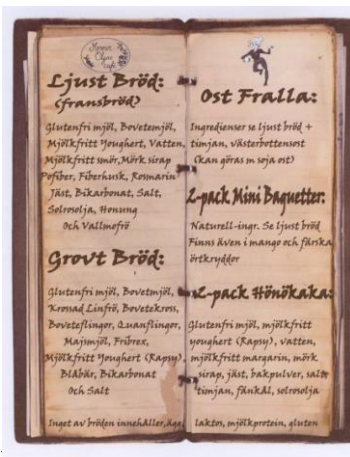 Ljust Bröd:
(fransbröd)
Glutenfri mjöl, Bovetemjöl,
Mjölkfritt Youghert, Vatten,
Mjölkfritt smör, Mörk sirap
Pofiber, Fiberhusk, Rosmarin
Jäst, Bikarbonat, Salt,
Solrosolja, Honung
Och Vallmofrö
Grovt Bröd:
Glutenfri mjöl, Bovetmjöl,
Krossad Linfrö, Bovetekross,
Boveteflingor, Quanflingor,
Majsmjöl, Fribrex,
Mjölkfritt Youghert (Rapsy),
Blåbär, Bikarbonat
Och Salt
Inget av bröden innehåller, ägg,
Ost Fralla:
Ingredienser se ljust bröd +
timjan, västerbottenost
(kan göras m soja ost)
2-pack Mini Baguetter:
Naturell-ingr. Se ljust bröd
Finns även i mango och färska
örtkryddor
2-pack Hönökaka:
Glutenfri mjöl, mjölkfritt
youghert (Rapsy), vatten,
mjölkfritt margarin, mörk
sirap, jäst, bakpulver, salt,
timjan, fänkål, solrosolja
laktos, mjölkprotein, gluten